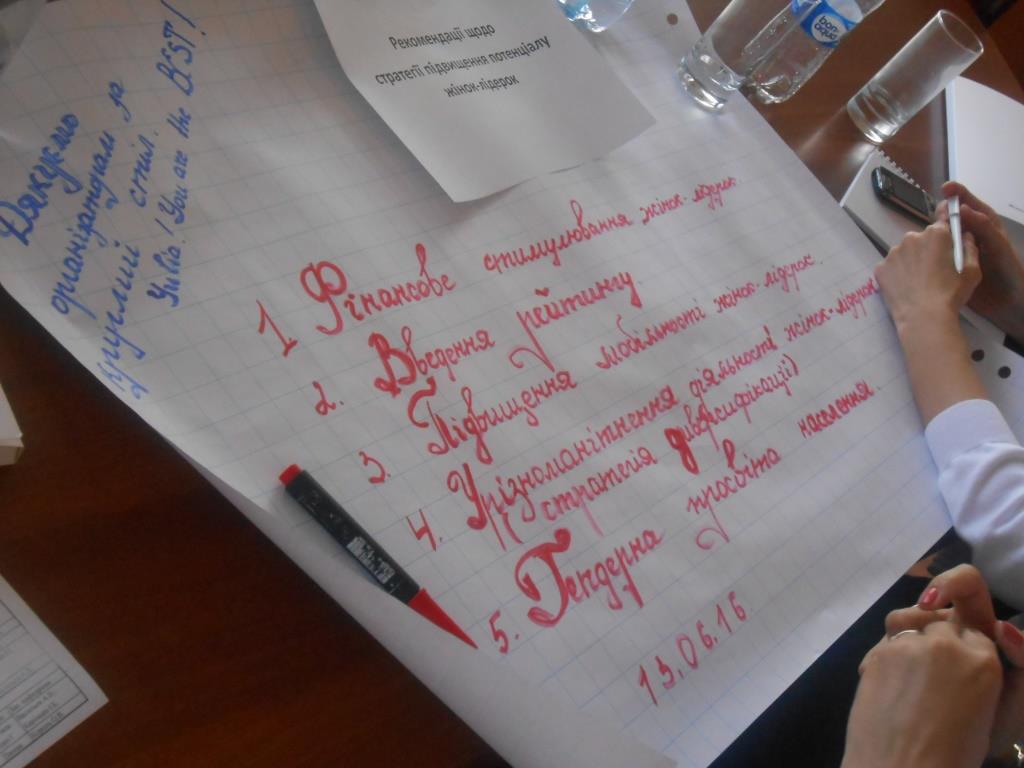 Рекомендації щодо
стратегії підвищення потенціалу
жінок-лідерок
Дякуємо
організаторам за
круглий стіл.
Yulia! You are the BEST!
1 Фінансове стимулювання жінок-лідерок.
2. Введення рейтингу.
3. Підвищення мобільності жінок-лідерок.
4. Урізноманітнення діяльності жінок-лідерок
(стратегія диверсифікації)
5. Гендерна просвіта населення.
13.06.16
bon
aqua